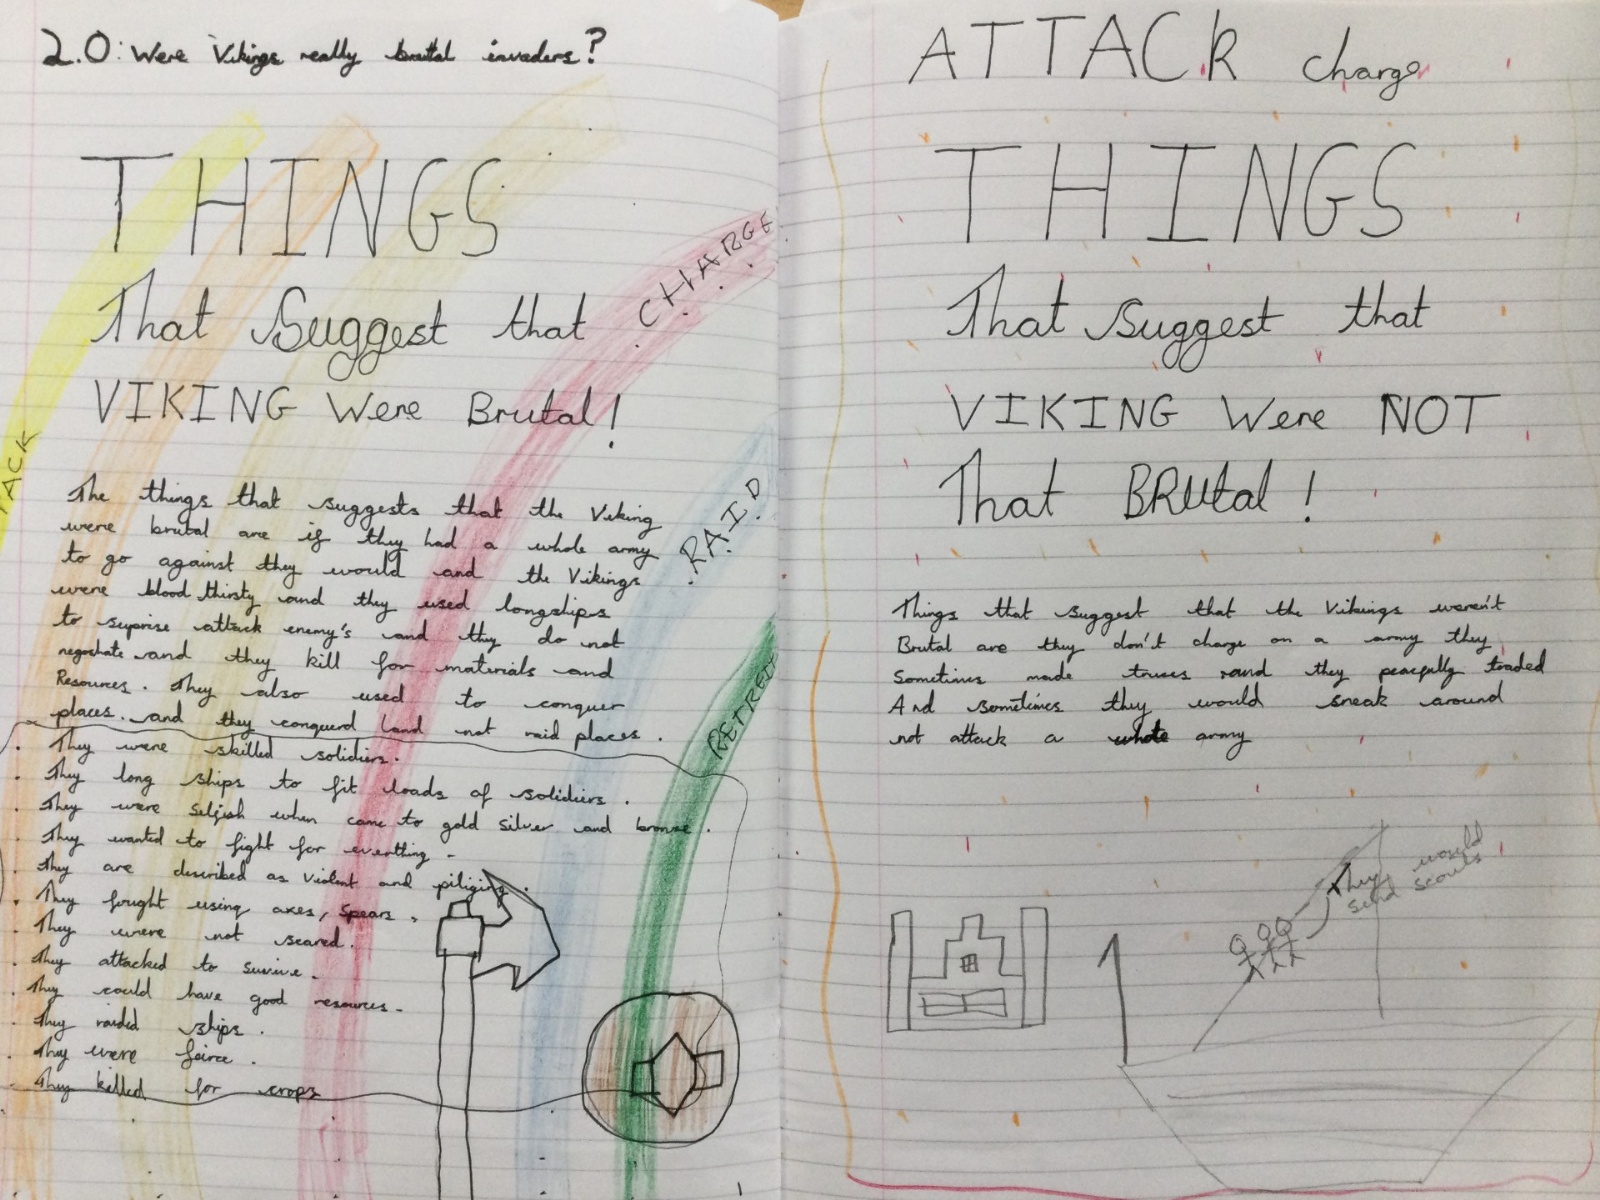 2.0: Were Vikings really brutal invaders?
THINGS
That Suggest that
VIKING Were Brutal!
ACK
CHARGE
RAID
The things that suggests that the Viking
were brutal are if they had a whole army
to go against they would and the Vikings
were blood thirsty and they used longships
to suprise attack enemy's and they do not
negochate and they kill for materials and
Resources. They also used to conquer
places. and they conquerd land not raid places.
They were skilled solidiers.
They long ships to fit loads of solidiers.
They were selfish when came to gold silver and bronze.
They wanted to fight for everthing.
They are described as violent and piliging.
They fought using axes, spears.
They were not scared.
They attacked to survive.
They could have good resources.
They raided ships.
They were feirce.
They killed for crops
ATTACK charge
THINGS
That Suggest that
VIKING Were NOT
That BRUtal!
Things that suggest that the Vikings weren't
Brutal are they don't charge on a army they
Sometimes made truses and they peacfully traded
And sometimes they would sneak around
not attack a whole army
They would
send scouts